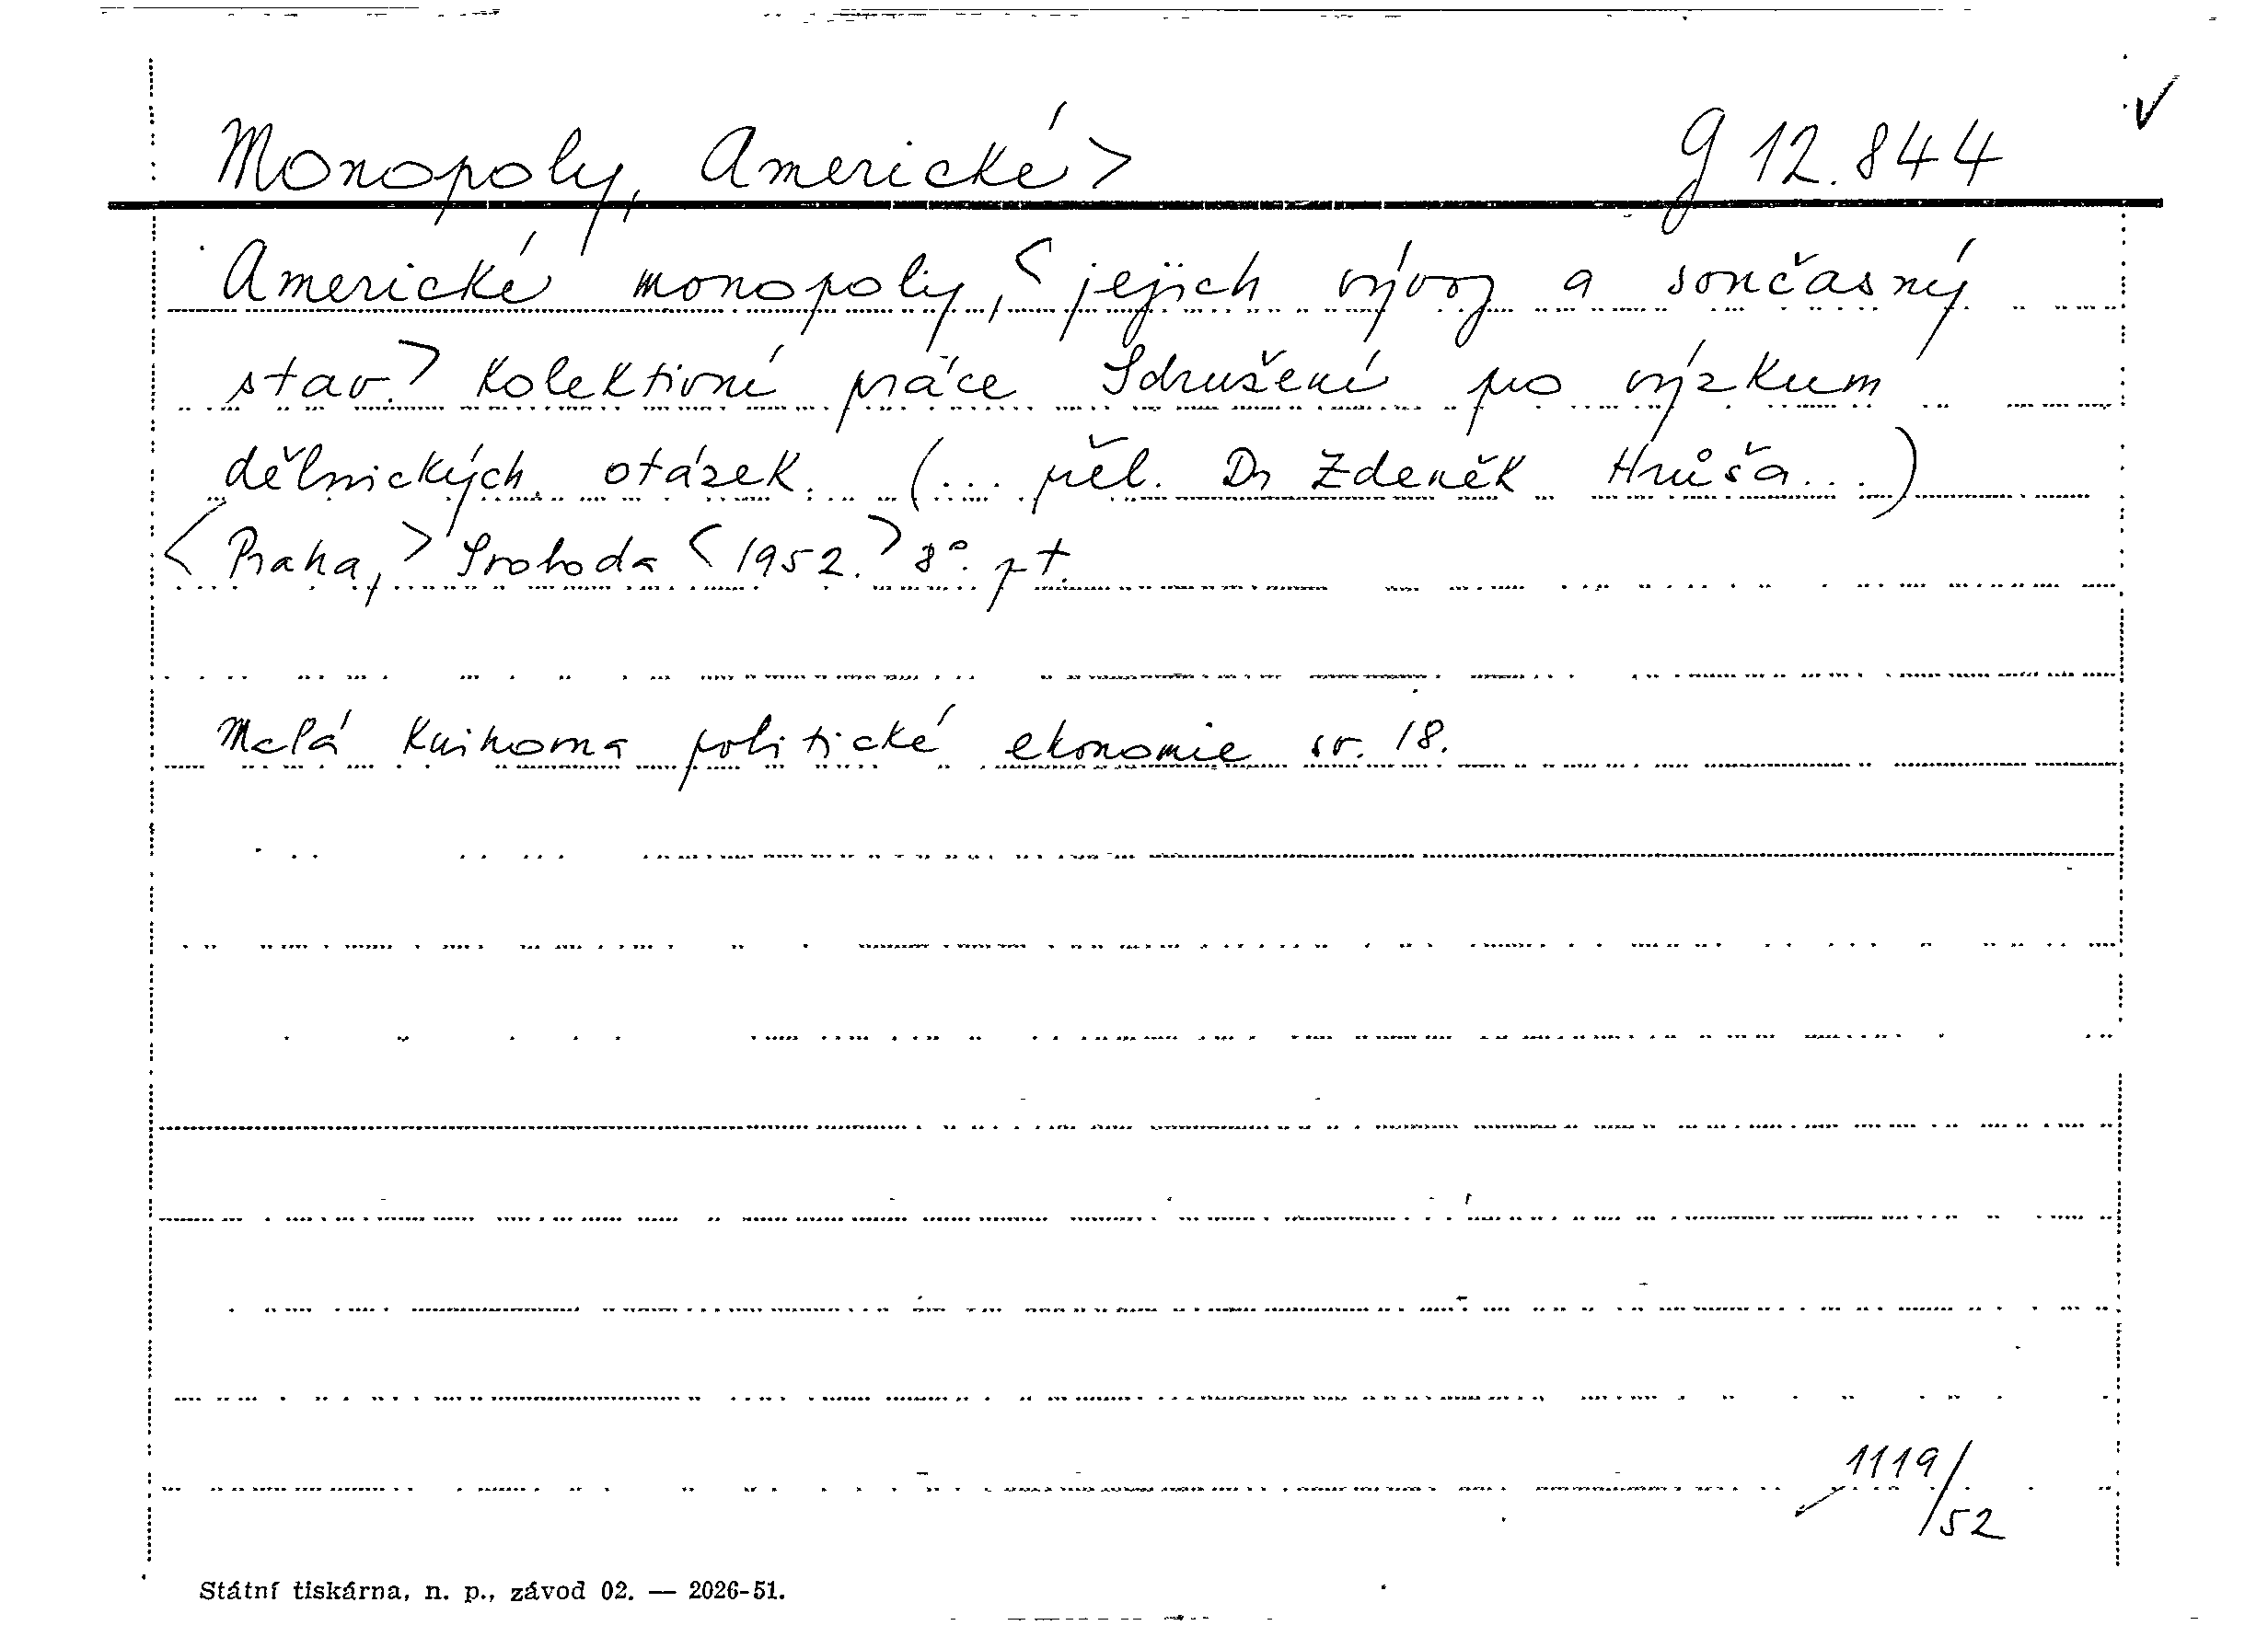 Monopoly, Americké> g 12.844 ✓
Americké monopoly, <jejich vývoj a současný
stav.> Kolektivní práce Sdružení pro výzkum
dělnických otázek. (... přel. Dr Zdeněk Hrůša...)
<Praha,> Svoboda <1952.> 8°. pt.
Malá knihovna politické ekonomie sv. 18.
1119/52
Státní tiskárna, n. p., závod 02. — 2026-51.